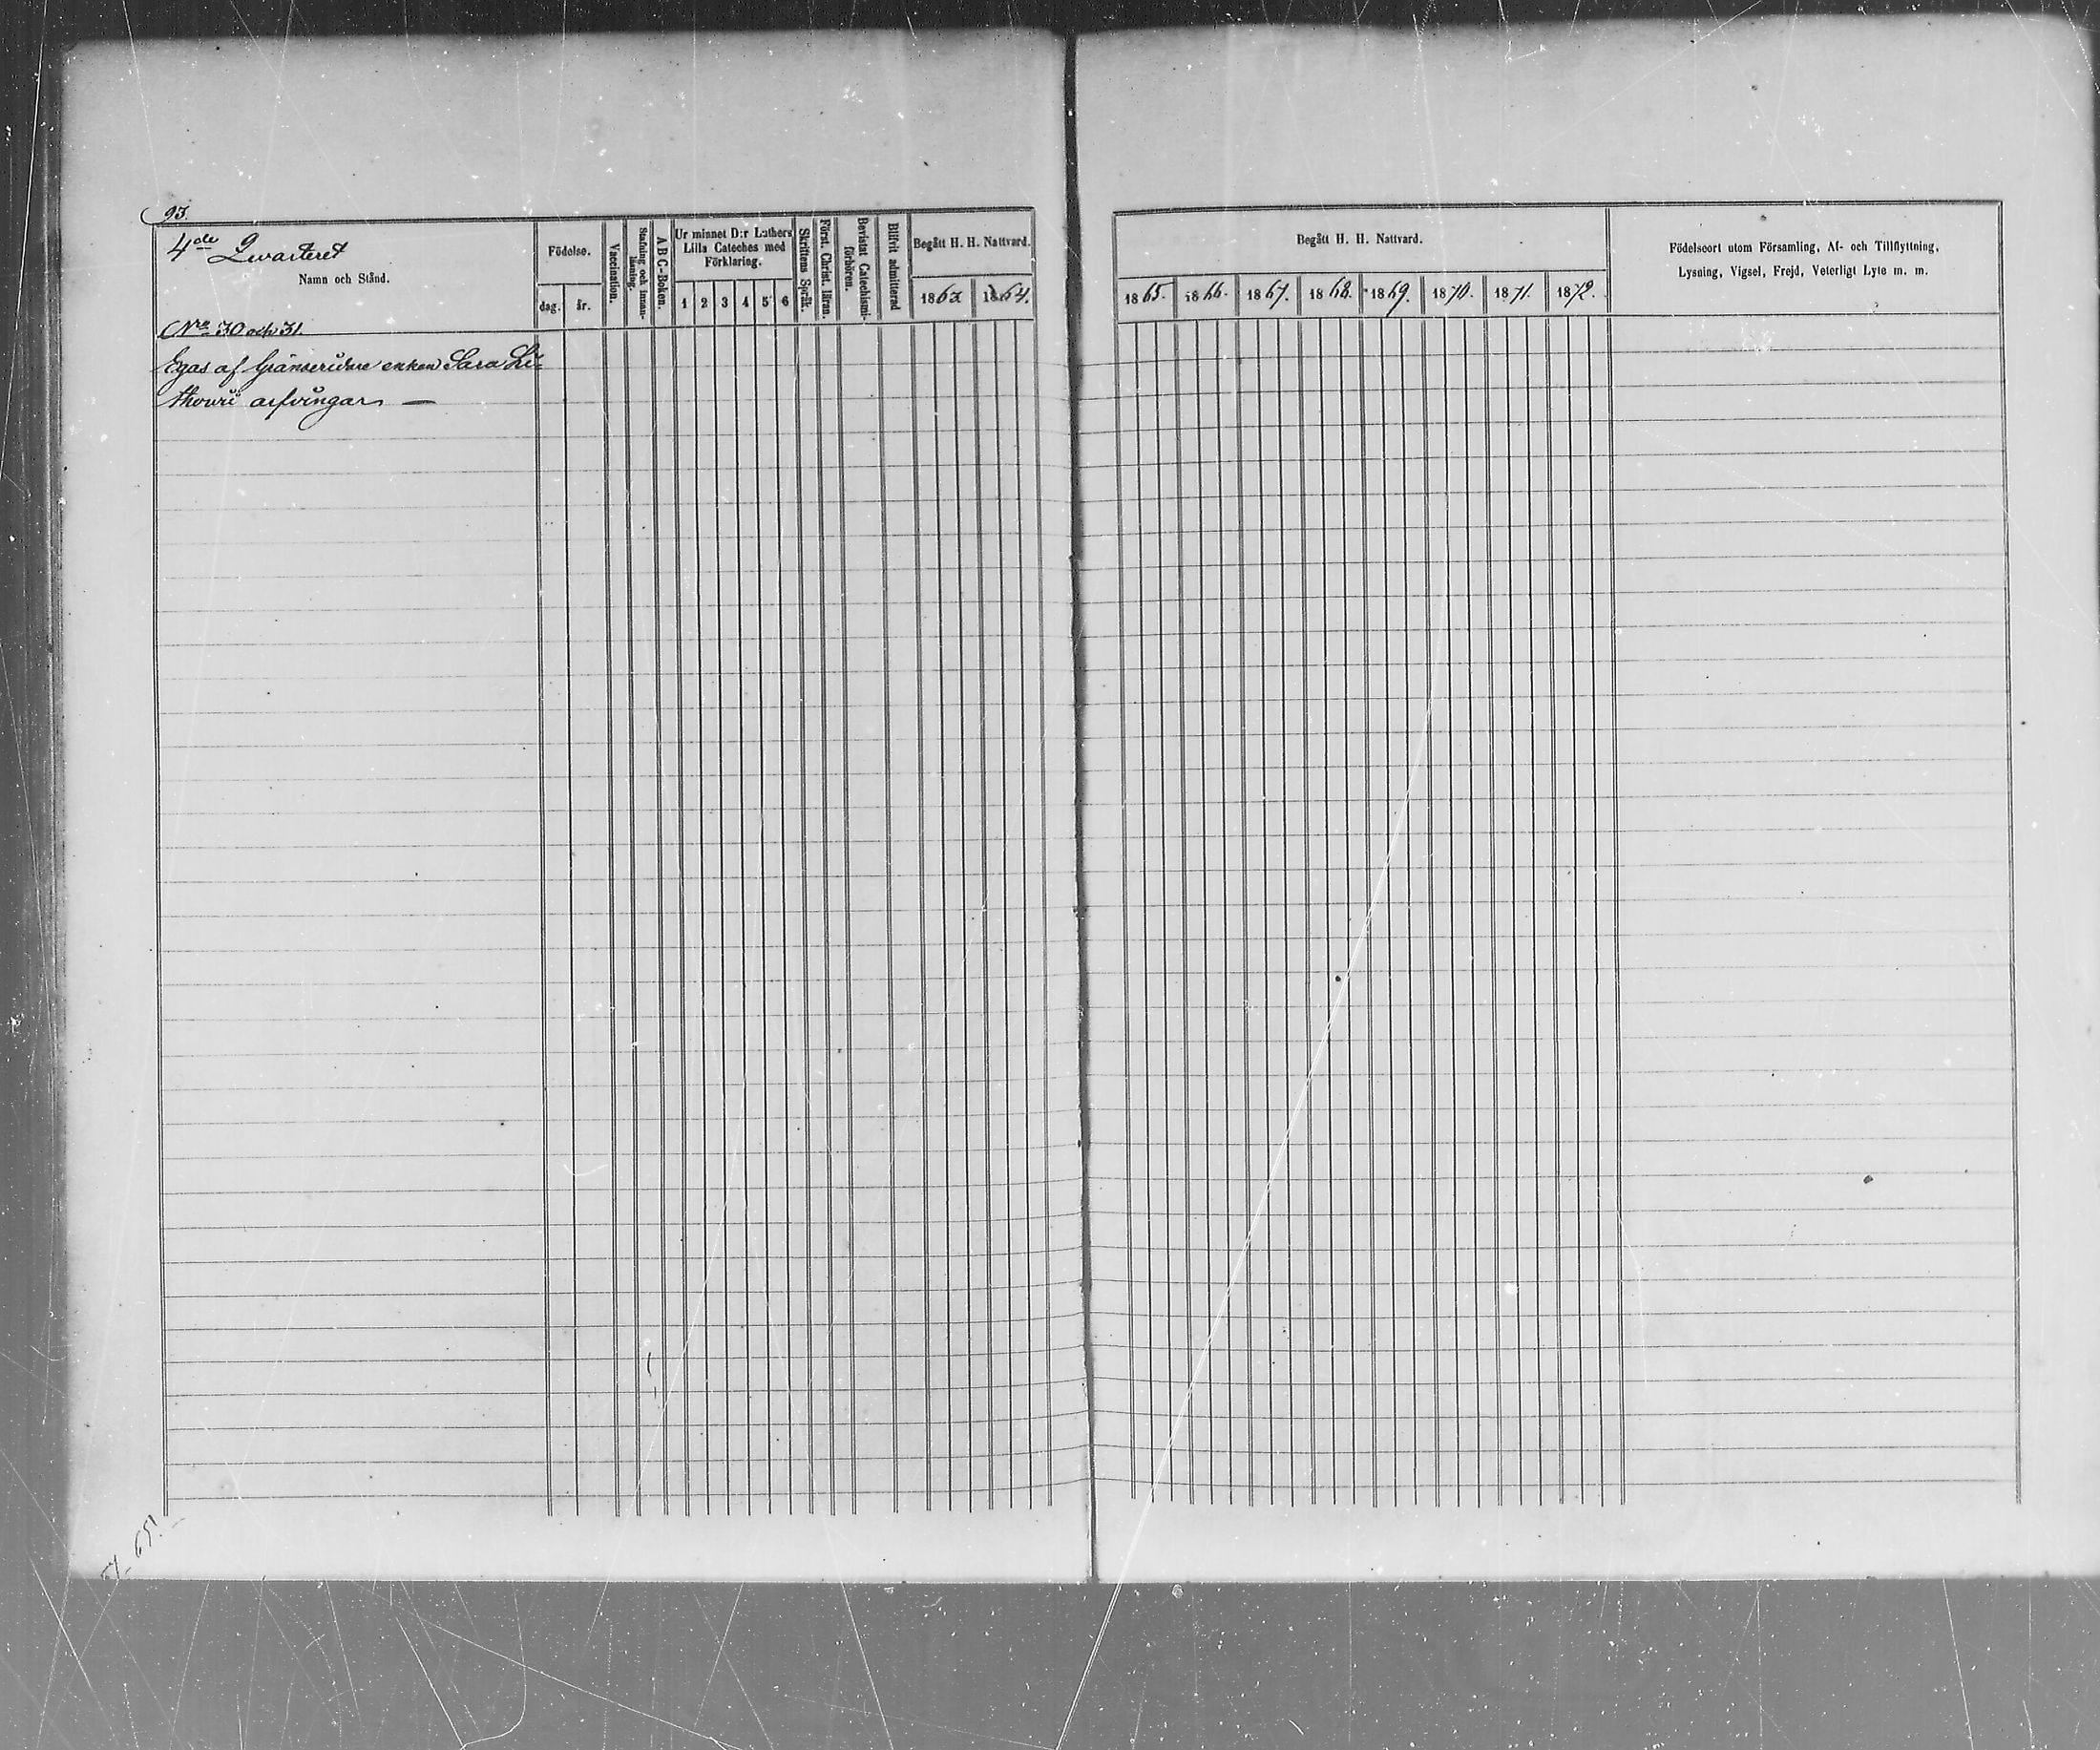 93.
4de Qvarteret
Namn och Stånd.
Födelse.
dag. år.
Vaccination.
Stafning och innan-
läsning.
A B C-Boken.
Ur minnet D:r Luthers
Lilla Cateches med
Förklaring.
1 2 3 4 5 6
Skriftens Språk.
Först. Christ. läran.
Bevistat Catechismi-
förhören.
Blifvit admitterad
Begått H. H. Nattvard.
1863 1864.
Begått H. H. Nattvard.
1865. 1866. 1867. 1868. 1869. 1870. 1871. 1872.
Födelseort utom Församling, Af- och Tillflyttning,
Lysning, Vigsel, Frejd, Veterligt Lyte m. m.
No 30 och 31.
Egas af Gränseridare enkan Sara Li-
thovii arfvingar —